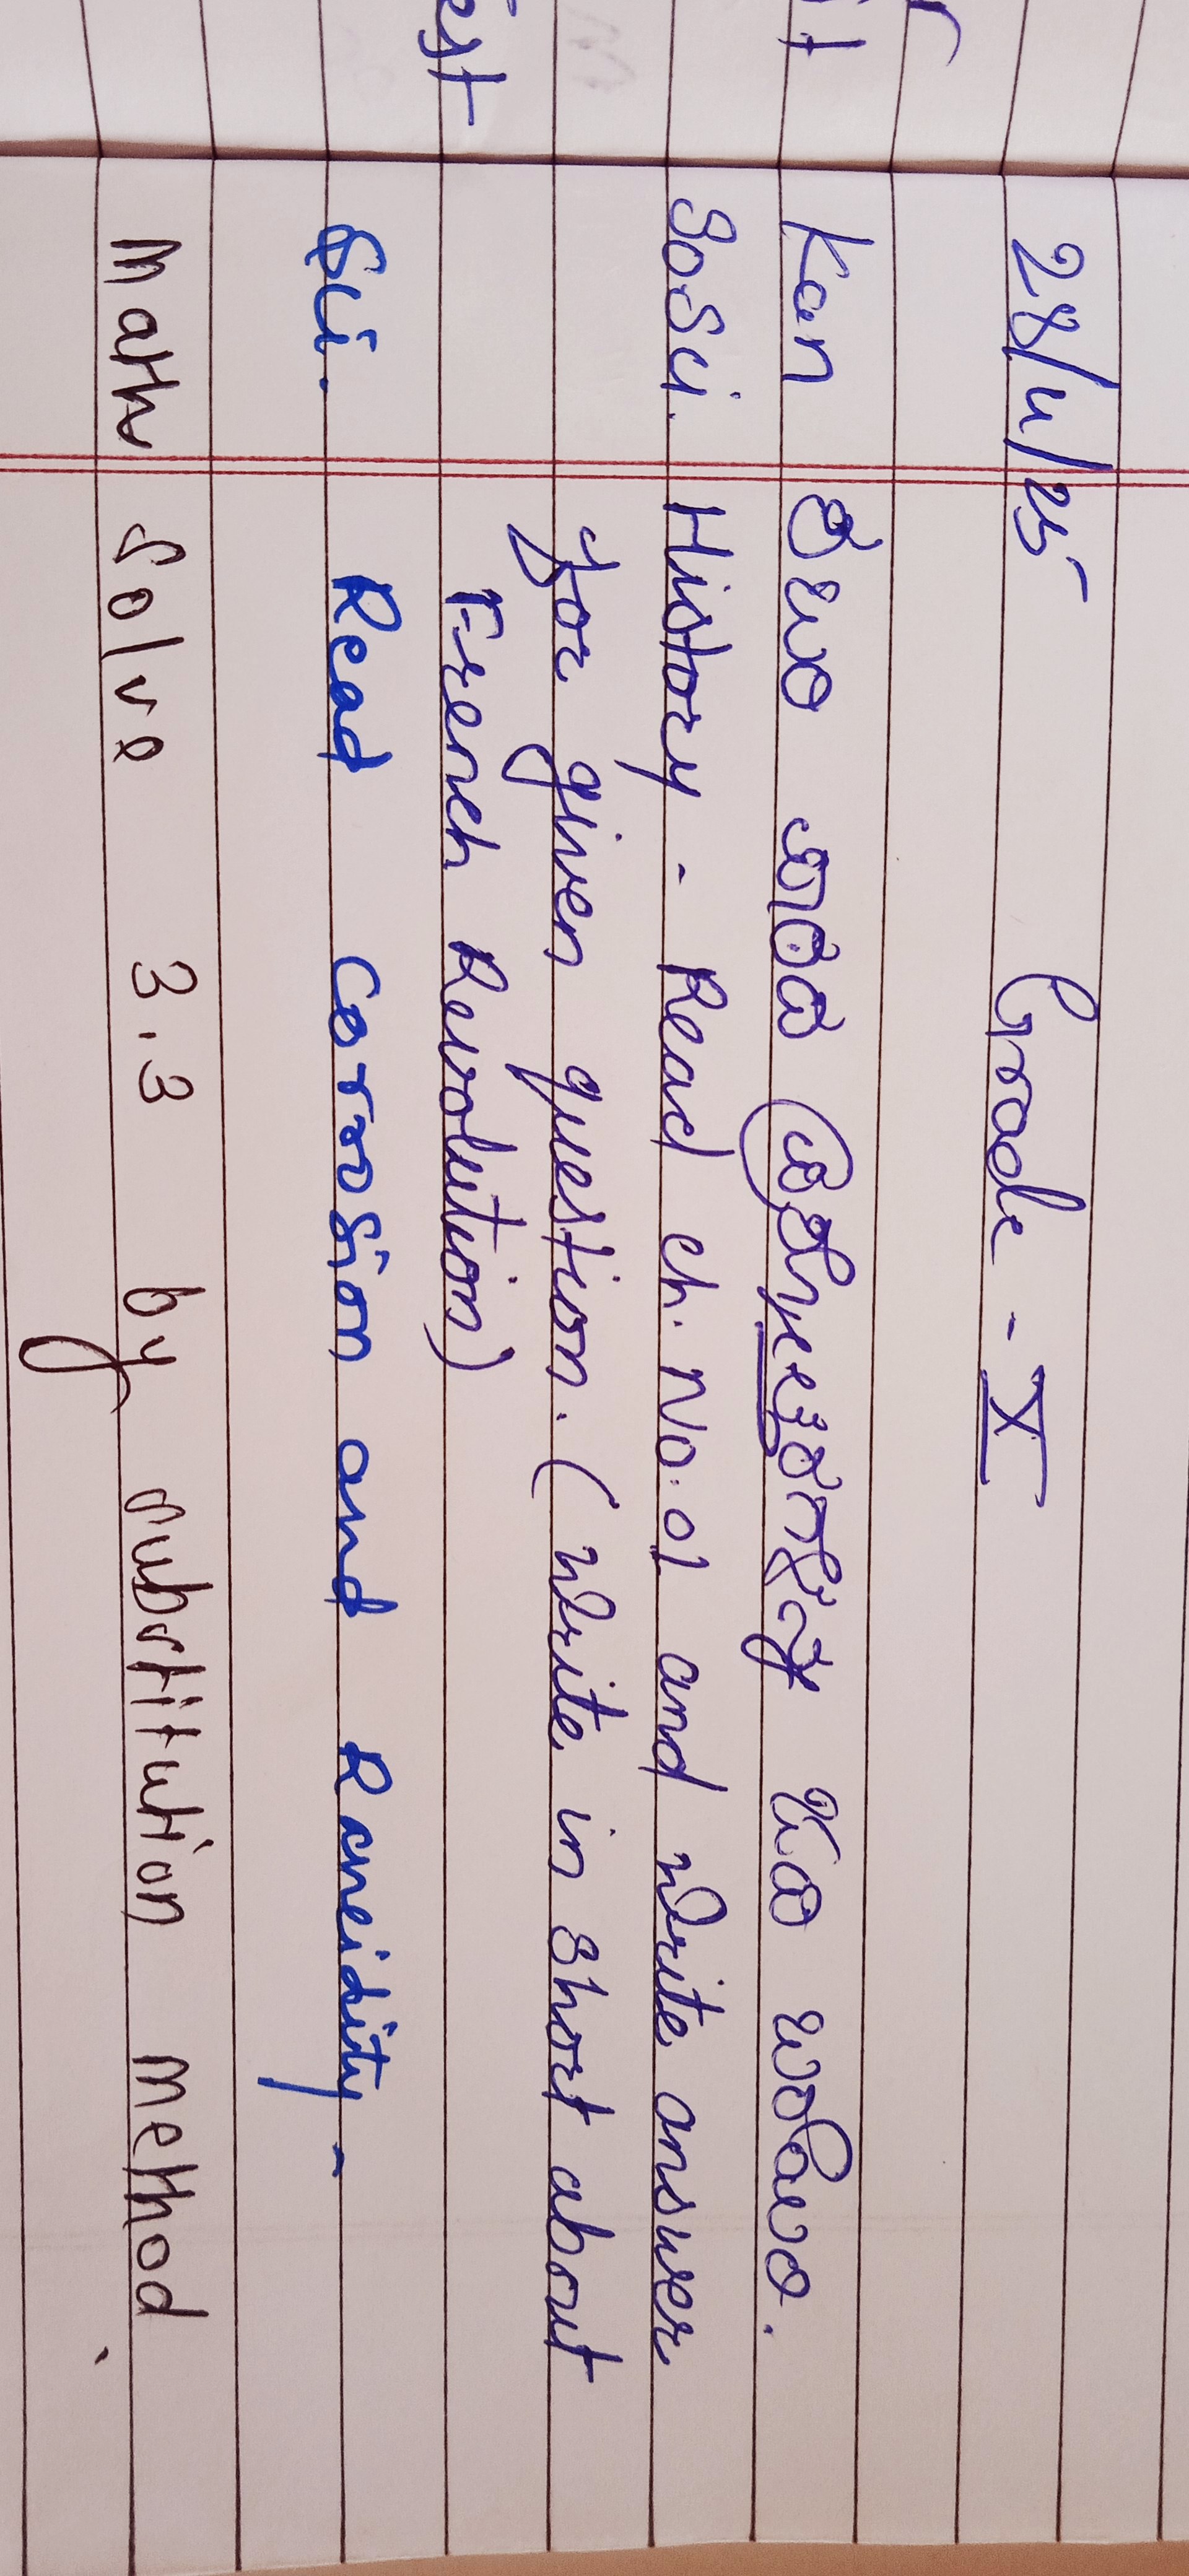 28/4/25 Grade - X
Kan
SoSci. History - Read ch. No. 01 and write answer
for given question. (write in short about
French Revolution)
Sci. Read Corrosion and Rancidity -
Maths Solve 3.3 by substitution method